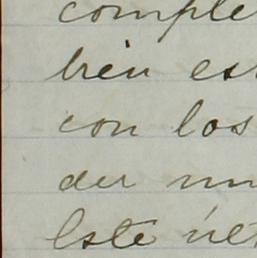 comple
bien es
con los
der un
Este úl